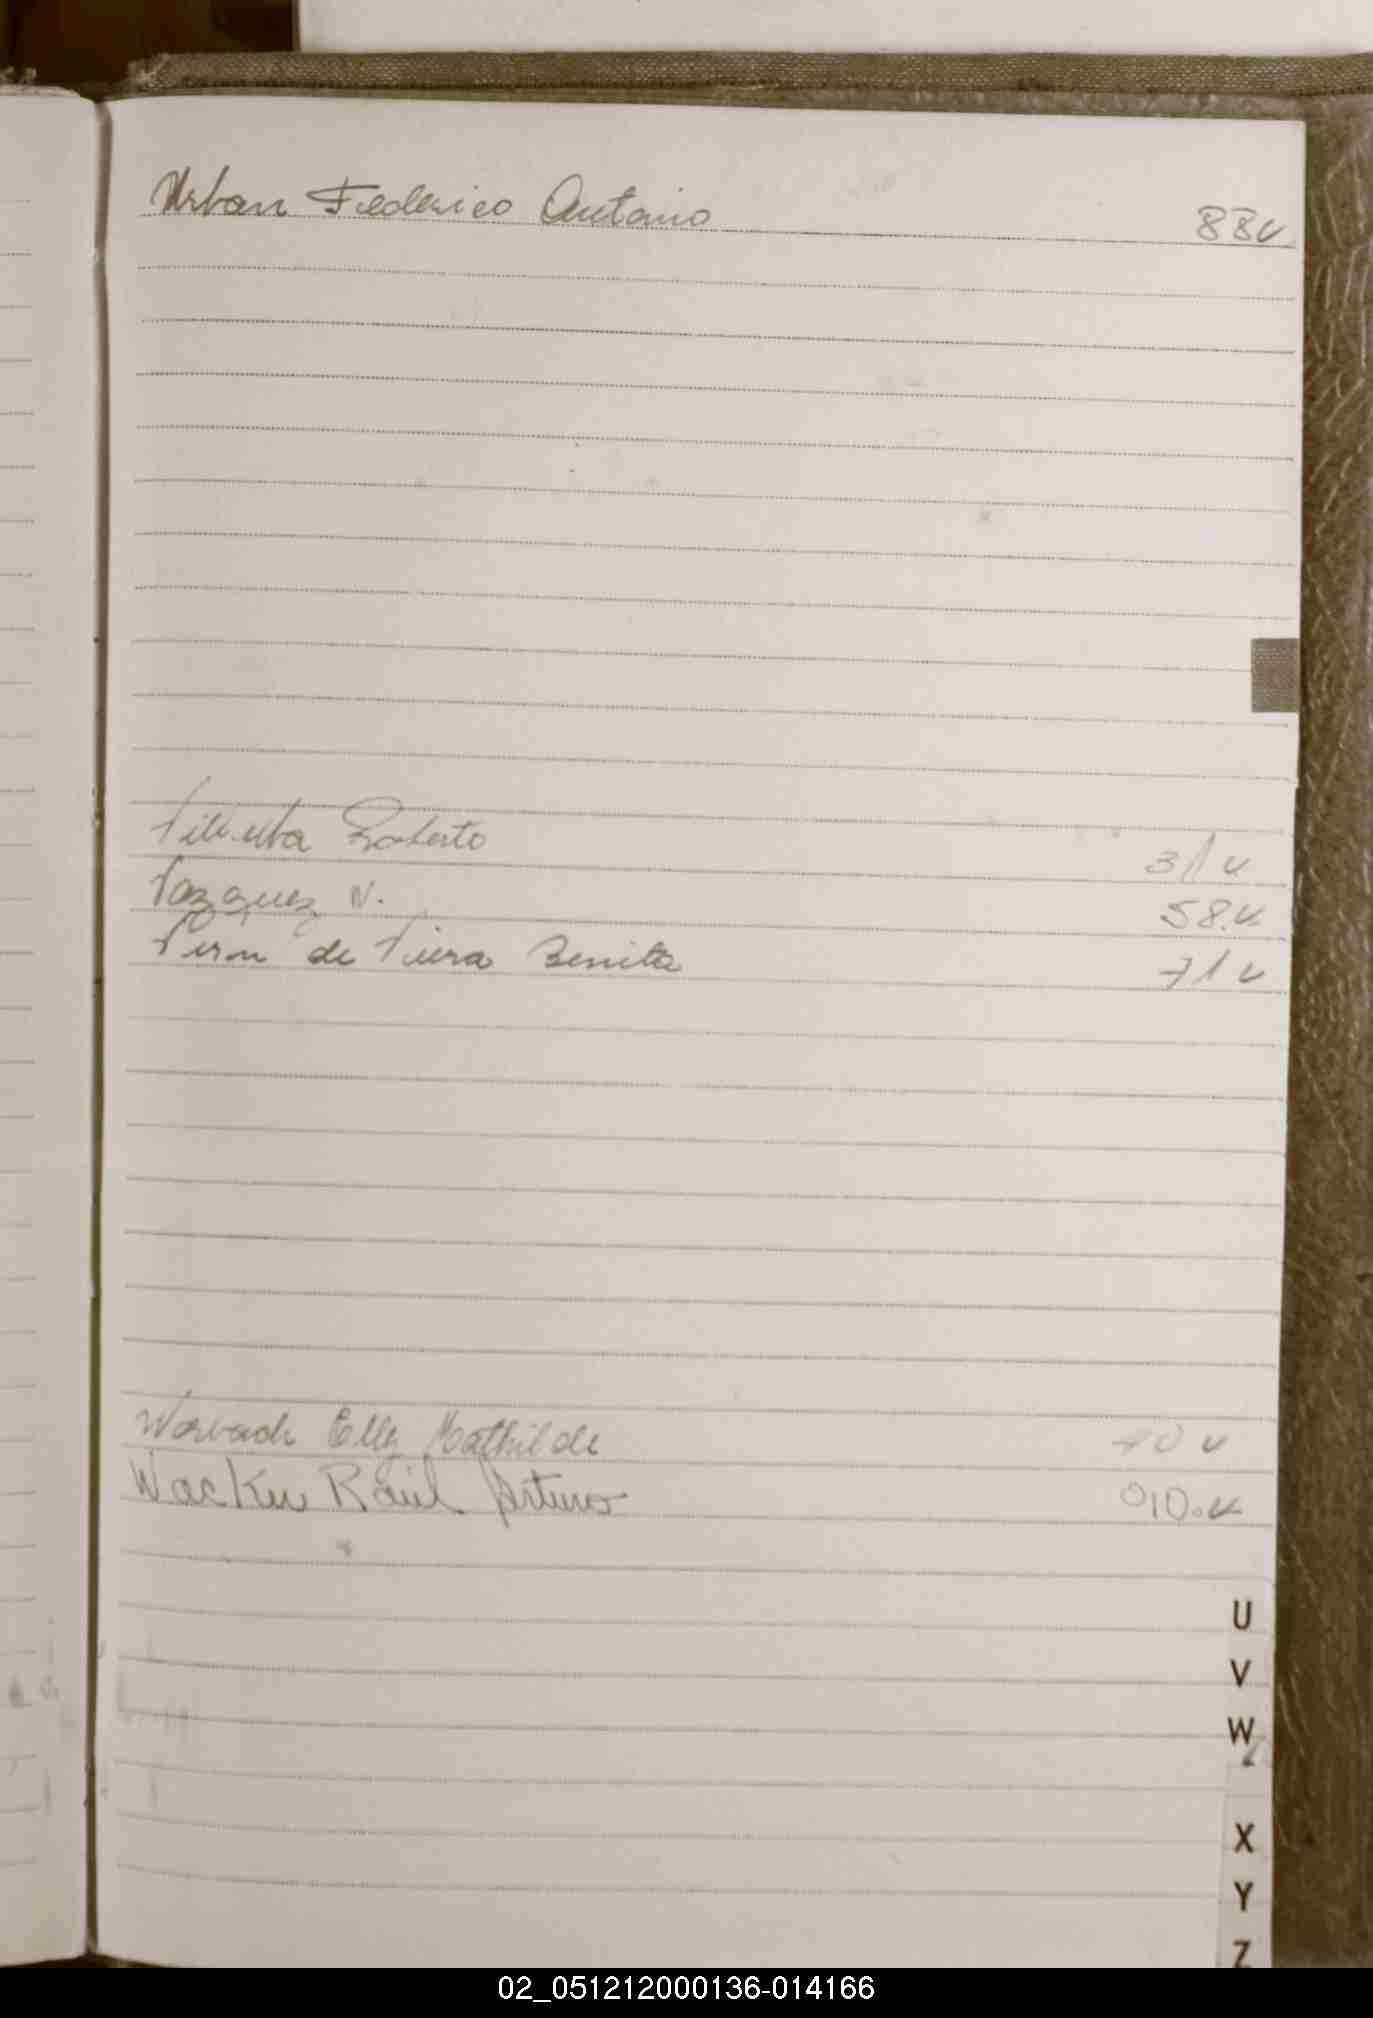 Urban Federico Antonio 88v
Roberto 31v
Vazquez N. 58.v
de Viera Benita 71v
Worbach Elly Mathilde 40v
Wacker Raúl Arturo 010.v
U
V
W
X
Y
Z
02_051212000136-014166